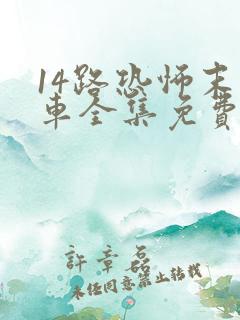 14路恐怖末
车全集免费
許章磊
未经同意禁止转载